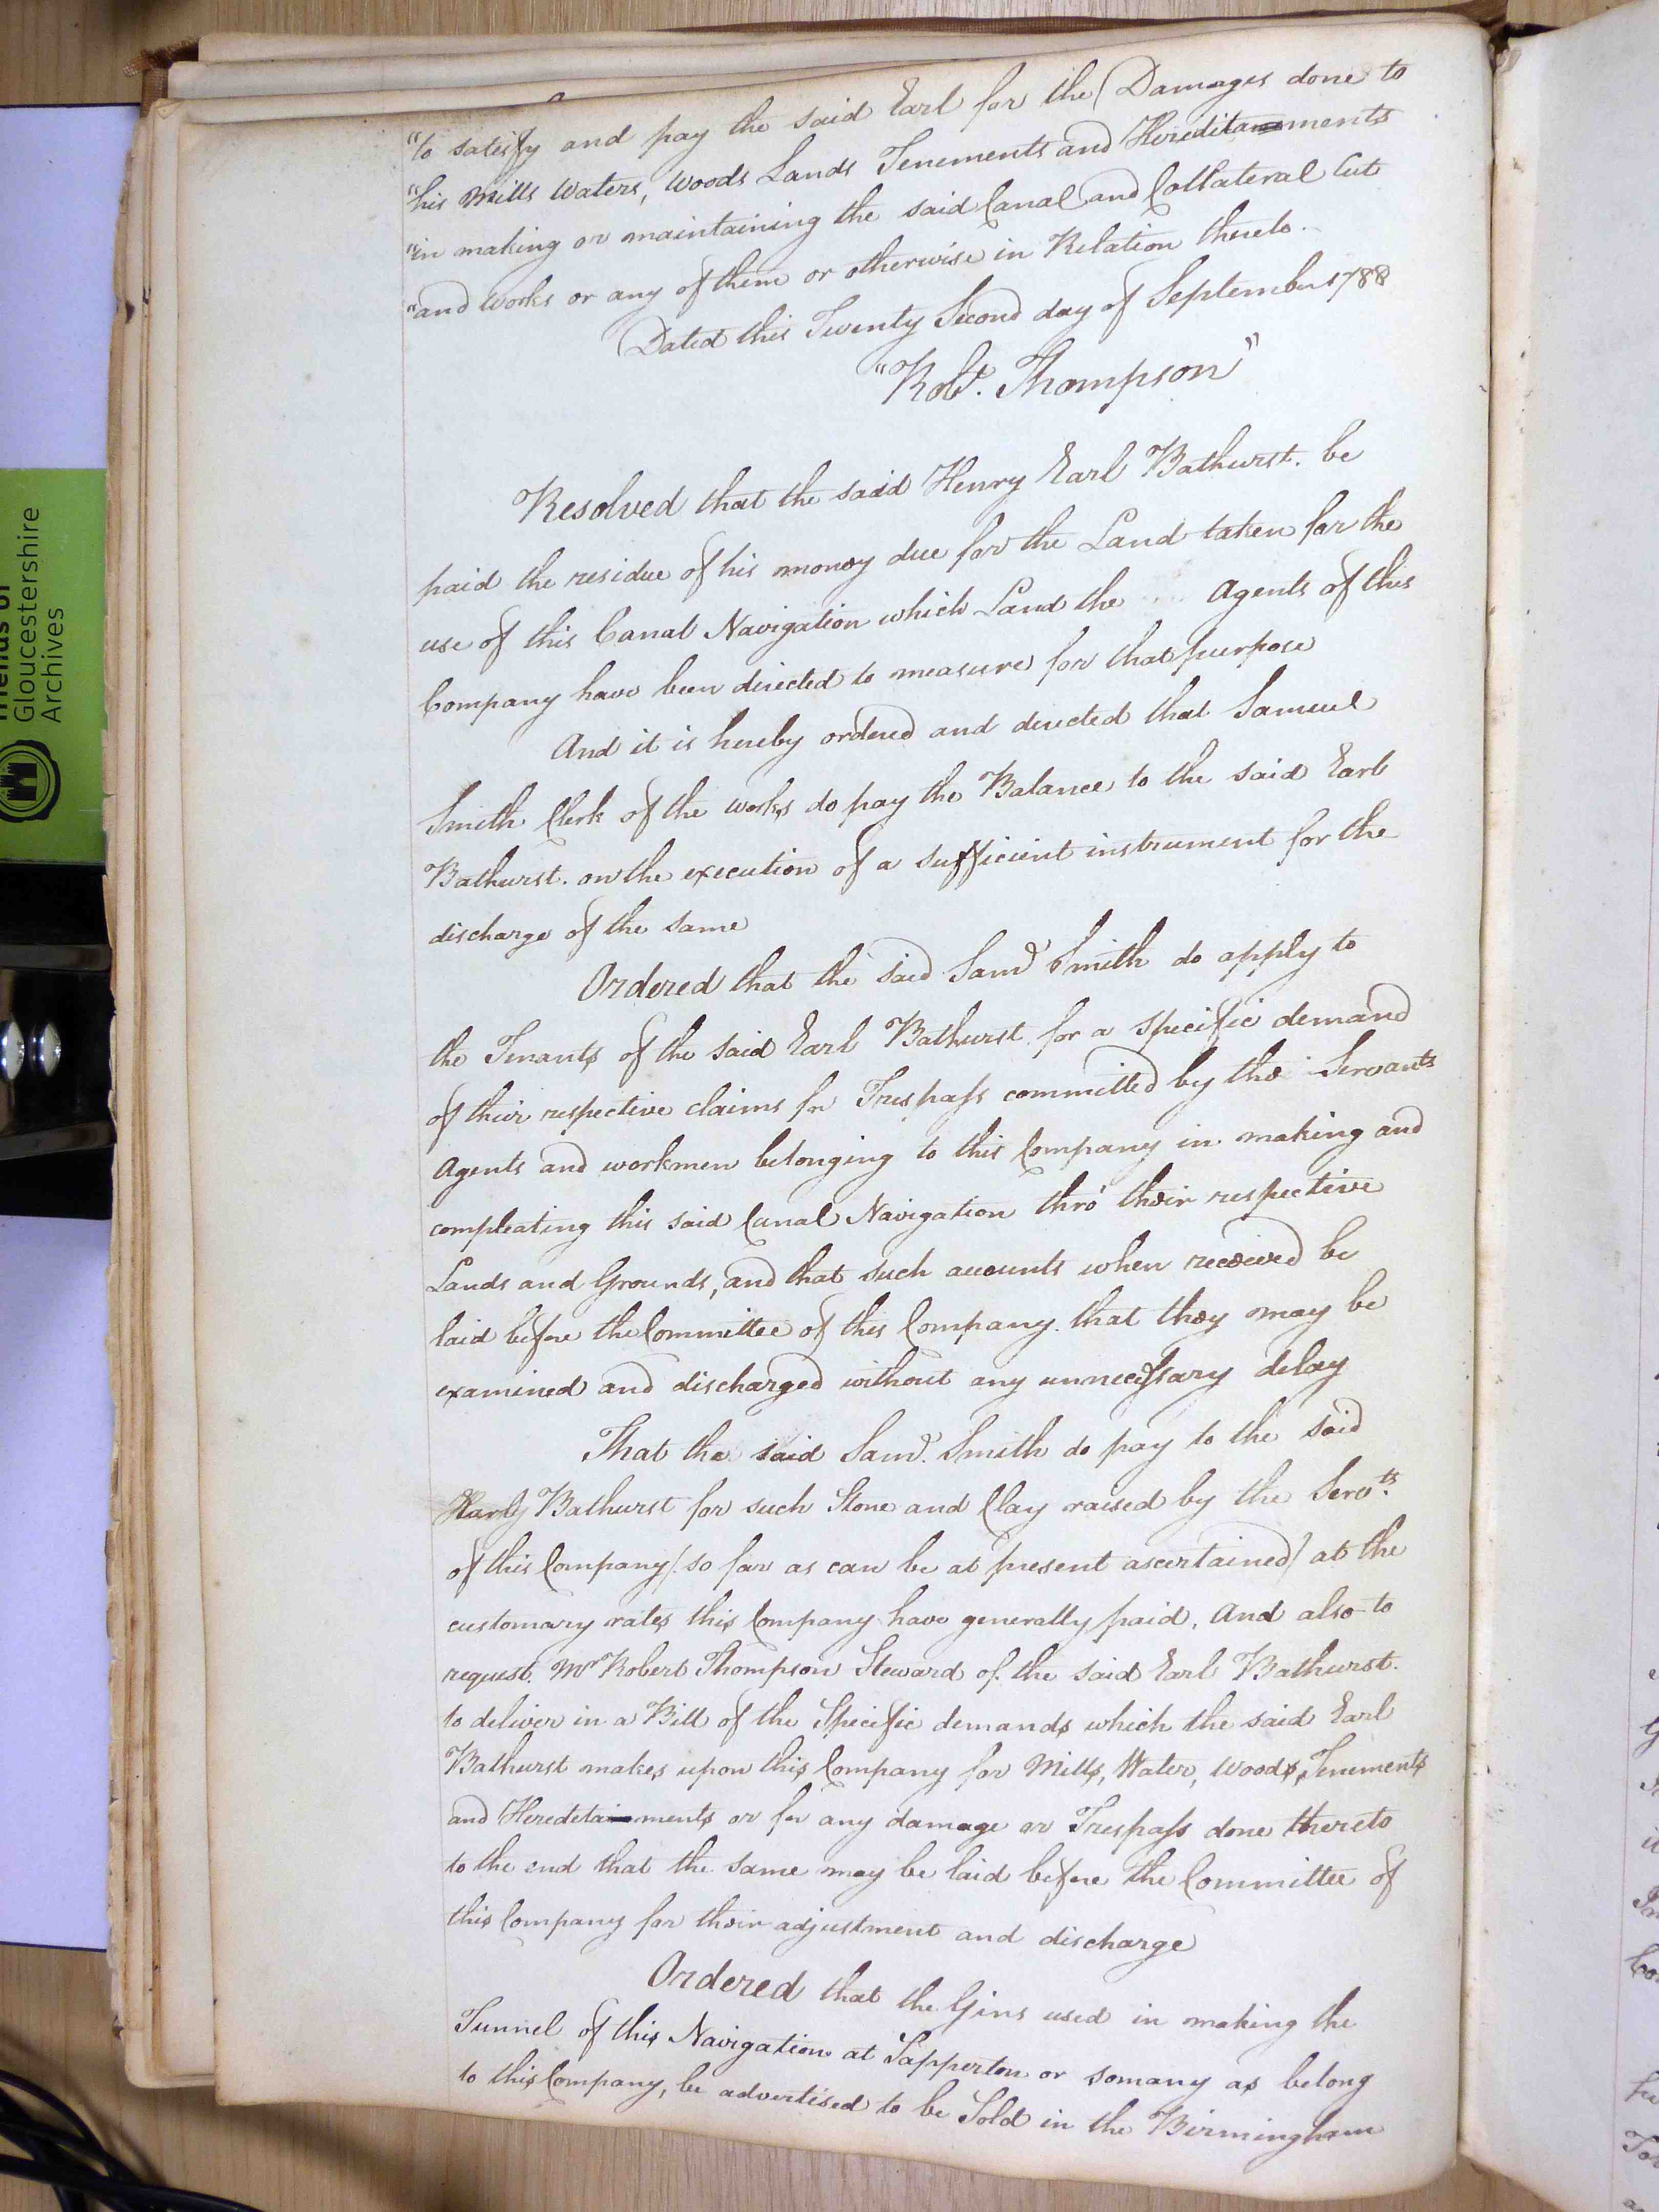 "to satisfy and pay the said Earl for the Damages done to
"his Mills Waters, Woods Lands Tenements and Hereditaments
"in making or maintaining the said Canal and Collateral Cut
"and Works or any of them or otherwise in Relation thereto.
Dated this Twenty Second day of September 1788
"Robt. Thompson"
Resolved that the said Henry Earl Bathurst. be
paid the residue of his money due for the Land taken for the
use of this Canal Navigation which Land the Agents of this
Company have been directed to measure for that purpose
And it is hereby ordered and directed that Samuel
Smith Clerk of the works do pay the Balance to the said Earl
Bathurst. on the execution of a sufficient instrument for the
discharge of the same
Ordered that the said Saml Smith do apply to
the Tenants of the said Earl Bathurst for a specific demand
of their respective claims for Trespass committed by the Servants
Agents and workmen belonging to this Company in making and
compleating this said Canal Navigation thro' their respective
Lands and Grounds, and that such accounts when received be
laid before the Committee of this Company. that they may be
examined and discharged without any unnecessary delay
That the said Saml. Smith do pay to the said
Bathurst for such Stone and Clay raised by the Servts.
of this Company (so far as can be at present ascertained) at the
customary rates this Company have generally paid, And also to
request. Mr Robert Thompson Steward of the said Earl Bathurst.
to deliver in a Bill of the Specific demands which the said Earl
Bathurst makes upon this Company for Mills, Water, Woods, Tenements
and Heredetaments or for any damage or Trespass done thereto
to the end that the same may be laid before the Committee of
this Company for their adjustment and discharge
Ordered that the Gins used in making the
Tunnel of this Navigation at Sapperton or somany as belong
to this Company, be advertised to be Sold in the Birmingham
Friends of
Gloucestershire
Archives